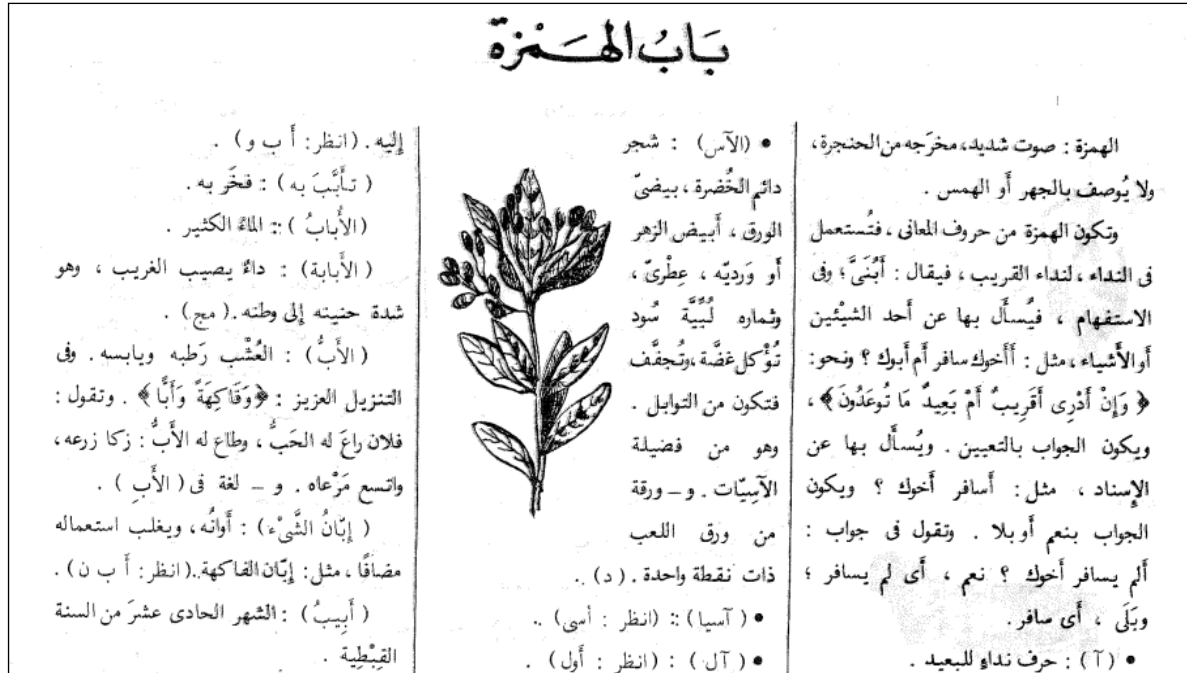 بَابُ الهَمْزة
الهمزة : صوت شديد، مخرَجه من الحنجرة،
ولا يُوصف بالجهر أَو الهمس .
وتكون الهمزة من حروف المعانى ، فتُستعمل
فى النداء ، لنداء القريب ، فيقال : أَبُنَىَّ ؛ وفى
الاستفهام ، فيُسأَل بها عن أَحد الشيْئين
أَو الأَشياء ، مثل : أَأَخوك سافر أَم أَبوك ؟ ونحو:
﴿ وَإِنْ أَدْرِى أَقَرِيبٌ أَمْ بَعِيدٌ مَا تُوعَدُونَ ﴾ ،
ويكون الجواب بالتعيين . ويُسأَل بها عن
الإِسناد ، مثل : أَسافر أَخوك ؟ ويكون
الجواب بنعم أَو بلا . وتقول فى جواب :
أَلم يسافر أَخوك ؟ نعم ، أَى لم يسافر ؛
وبَلَى ، أَى سافر .
• ( آ ) : حرف نداءٍ للبعيد .
• (الآس) : شجر
دائم الخُضرة ، بيضىّ
الورق ، أَبيض الزهر
أَو وَرديّه ، عِطْرىّ ،
وثماره لُبِّيَّة سُود
تُؤْكل غضَّة ،وتُجفَّف
فتكون من التوابل .
وهو من فصيلة
الآسِيّات . و – ورقة
من ورق اللعب
ذات نقطة واحدة . ( د ) .
• ( آسيا ) : (انظر : أسى) .
• ( آل ) : (انظر : أول) .
إِليه . (انظر: أ ب و) .
( تأَبَّبَ به ) : فخَر به .
(الأُبابُ ) : الماءُ الكثير .
(الأَبابة) : داءٌ يصيب الغريب ، وهو
شدة حنينه إِلى وطنه . (مج) .
(الأَبُّ) : العُشْب رَطبه ويابسه . وفى
التنزيل العزيز : ﴿وَفَاكِهَةً وَأَبًّا﴾ . وتقول :
فلان راعَ له الحَبُّ ، وطاع له الأَبُّ : زكا زرعه،
واتسع مَرْعاه . و – لغة فى ( الأَبِ ) .
( إِبّانُ الشَّىْء ) : أَوانُه ، ويغلب استعماله
مضافًا ، مثل: إِبّان الفاكهة . (انظر: أ ب ن) .
( أَبِيبُ ) : الشهر الحادى عشرَ من السنة
القِبْطِية .